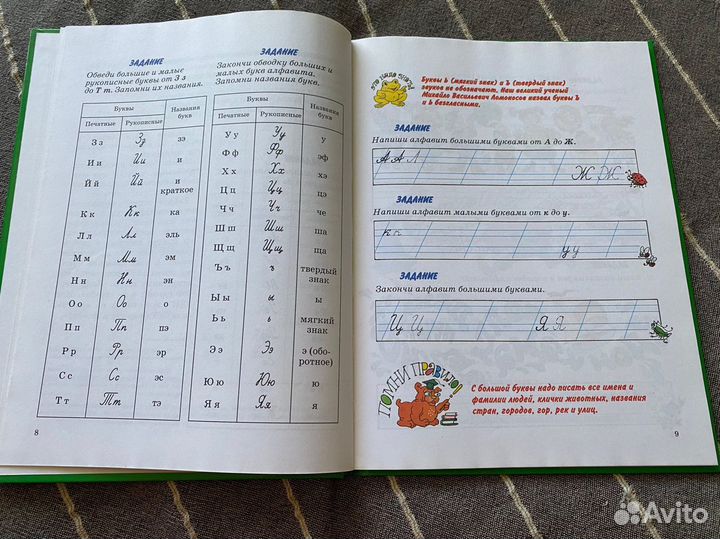 ЗАДАНИЕ
Обведи большие и малые
рукописные буквы от З з
до Т т. Запомни их названия.
Буквы
Названия
букв
Печатные
Рукописные
З з Зз зэ
И и Ии и
Й й Йй и
краткое
К к Кк ка
Л л Лл эль
М м Мм эм
Н н Нн эн
О о Оо о
П п Пп пэ
Р р Рр эр
С с Сс эс
Т т Тт тэ
8
ЗАДАНИЕ
Закончи обводку больших и
малых букв алфавита.
Запомни названия букв.
Буквы
Названия
букв
Печатные
Рукописные
У у Уу у
Ф ф Фф эф
Х х Хх хэ
Ц ц Цц цэ
Ч ч Чч че
Ш ш Шш ша
Щ щ Щщ ща
Ъ ъ ъ твердый
знак
Ы ы ы ы
Ь ь ь мягкий
знак
Э э Ээ э (обо-
ротное)
Ю ю Юю ю
Я я Яя я
ЭТО НАДО ЗНАТЬ!
Буквы Ь (мягкий знак) и Ъ (твердый знак)
звуков не обозначают. Наш великий ученый
Михайло Васильевич Ломоносов назвал буквы Ъ
и Ь безгласными.
ЗАДАНИЕ
Напиши алфавит большими буквами от А до Ж.
А А Л
Ж Ж
ЗАДАНИЕ
Напиши алфавит малыми буквами от к до у.
к к
у у
ЗАДАНИЕ
Закончи алфавит большими буквами.
Ц Ц
Я Я
ПОМНИ ПРАВИЛО!
С большой буквы надо писать все имена и
фамилии людей, клички животных, названия
стран, городов, гор, рек и улиц.
9
Avito